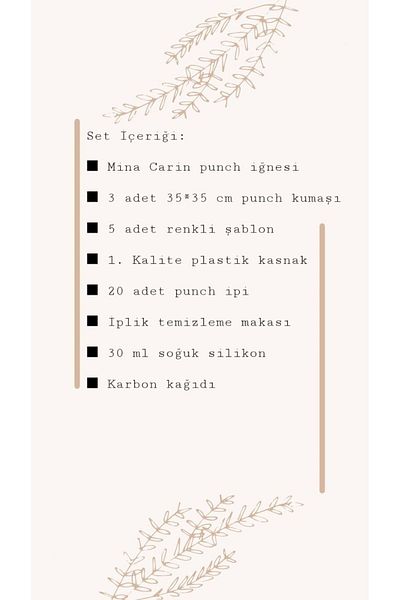 Set Içeriği:
■ Mina Carin punch iğnesi
■ 3 adet 35*35 cm punch kumaşı
■ 5 adet renkli şablon
■ 1. Kalite plastik kasnak
■ 20 adet punch ipi
■ İplik temizleme makası
■ 30 ml soğuk silikon
■ Karbon kağıdı